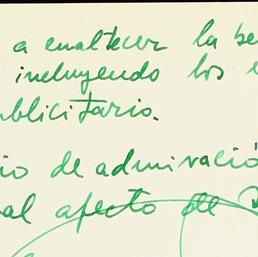 a enaltecer la be
incluyendo los e
ublicitario.
io de admiració
al afecto de D